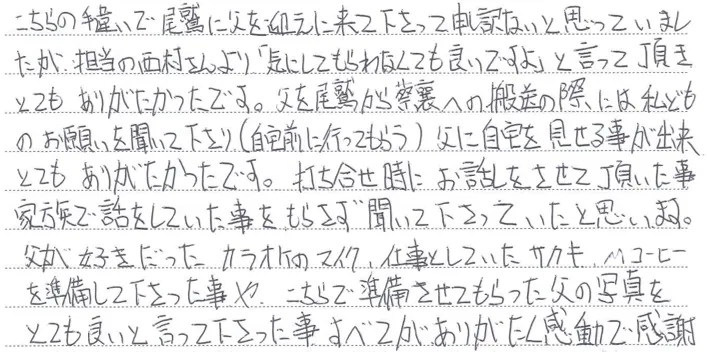 こちらの手違いで尾鷲に父を迎えに来て下さって申し訳ないと思っていまし
たが、担当の西村さんより「気にしてもらわなくても良いですよ」と言って頂き
とても ありがたかったです。父を尾鷲から 祭裏への搬送の際には私ども
のお願いを聞いて下さり(自宅前に行ってもらう)父に自宅を見せる事が出来
とても ありがたかったです。打ち合せ時に お話しをさせて頂いた事
家族で話をしていた事をもらさず聞いて下さっていたと思います。
父が好きだった カラオケのマイク、仕事としていたサカキ、コーヒー
を準備して下さった事や、こちらで準備させてもらった父の写真を
とても良いと言って下さった事 すべてがありがたく感動で感謝